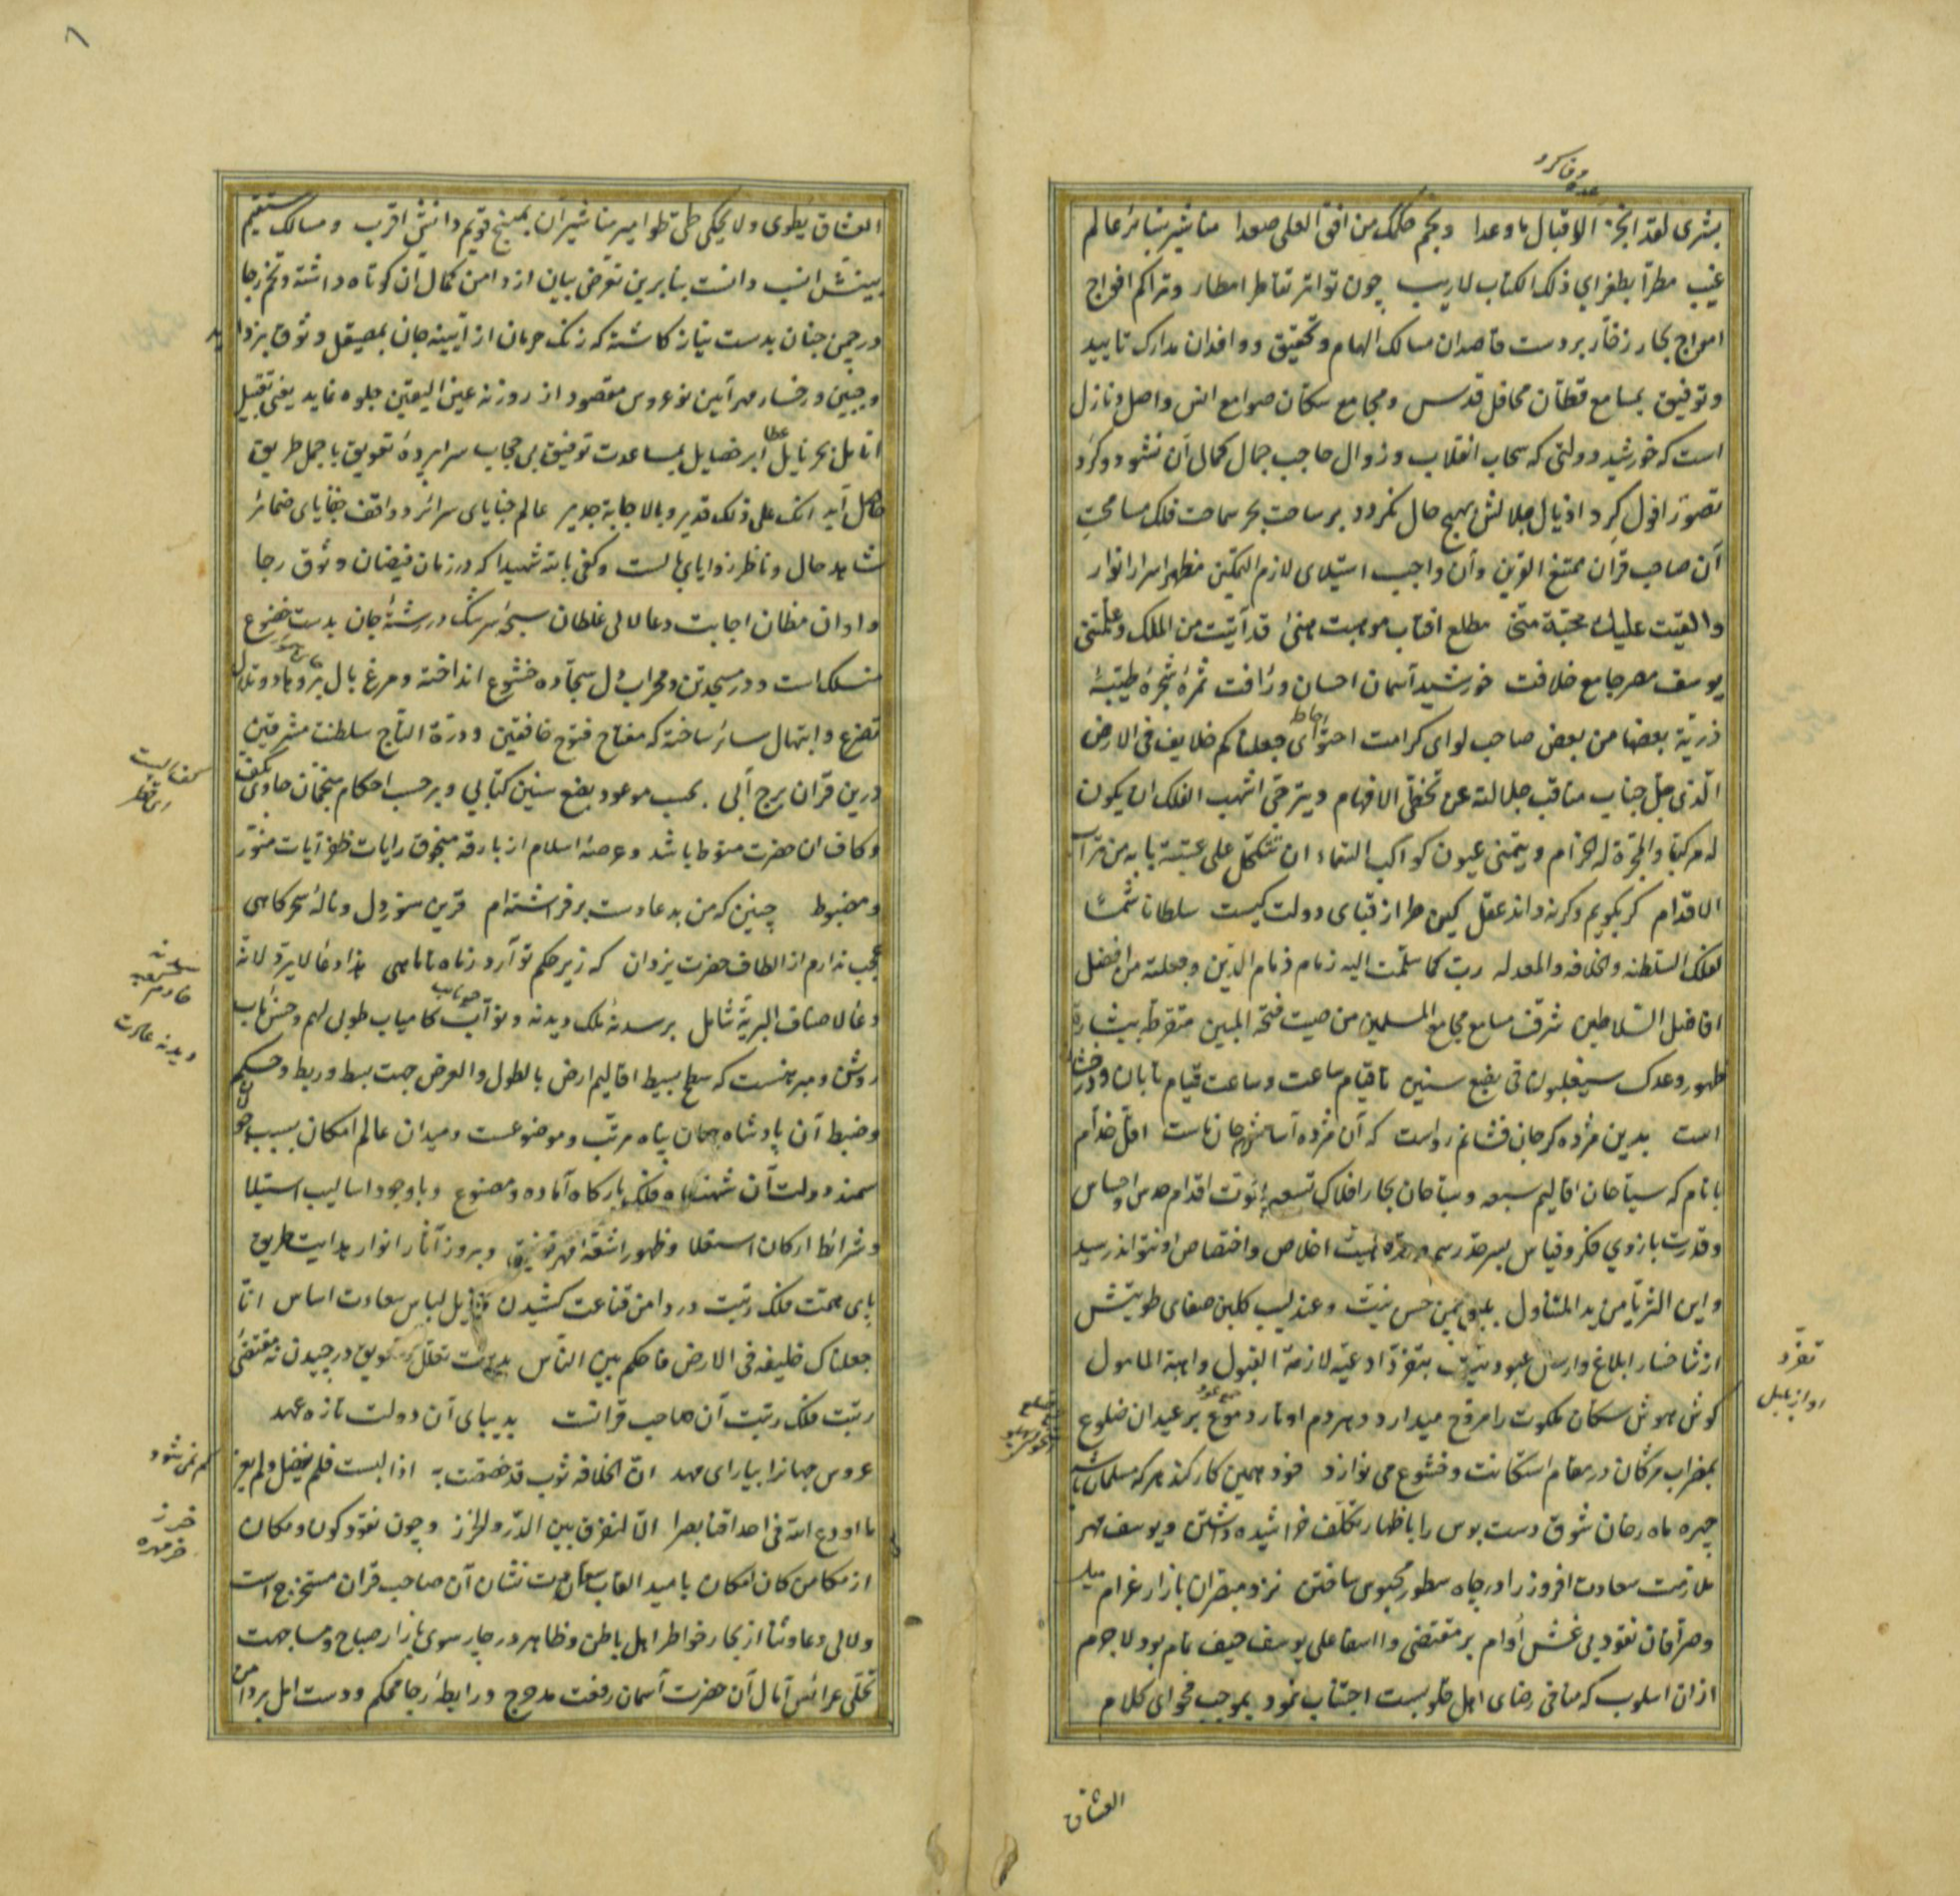 وفا كرد
بشرى لقد انجز الاقبال ما وعدا ونجم ملكك من افق العلى صعدا مناشير بشائر عالم
غيب مطرا بطغراي ذلك الكتاب لا ريب چون تواتر تقاطر امطار وتراكم افواج
امواج بحار زخار بر دست قاصدان مسالك الهام وتحقيق ووافدان مدارك تاييد
وتوفيق بمسامع قطان محافل قدس ومجامع سكان صوامع انس واصل ونازل
است كه خورشيد دولتى كه سحاب انقلاب وزوال حاجب جمال كمال آن نشود وكرد
تصور افول كرد اذيال جلالش بهيچ حال نكردد بر ساحت بحر سماحت فلك مساحت
آن صاحب قران ممتنع القرين وآن واجب استيلاى لازم التمكين مظهر اسرار انوار
والقيت عليك محبة منى مطلع افتاب موهبت قد آتيت من الملك وعلمتنى
يوسف مصر جامع خلافت خورشيد آسمان احسان ورافت ثمرۀ شجرۀ طيبۀ
ذرية بعضها من بعض صاحب لواى كرامت احتواى جعلناكم خلايف فى الارض
الذى جل جناب مناقب جلالته عن تخطى الافهام ويترجى اشهب الفلك ان يكون
له مركبا والمجرة له حزام ويتمنى عيون كواكب السماء ان تتكحل على عتبة بابه من تراب
الاقدام كر بكويم وكر نه داند عقل كين طراز قباى دولت كيست سلطانا شمسا
لفلك السلطنه والخلافه والمعدله رب كما سلمت اليه زمام ذمام الدين وجعلته من افضل
افاضل السلاطين شرف مسامع مجامع المسلمين من صيت فتحه المبين متقرطه ببشارة
ظهور وعدك سيغلبون فى بضع سنين تا قيام ساعت وساعت قيام تابان ودرخشان
است بدين مژده كر جان فشانم رواست كه آن مژده آسايش جان ماست اقل خدام
با نام كه سياحان اقاليم سبعه وسباحان بحار افلاك تسعه قوت اقدام حدس واحساس
وقدرت بازوي فكر وقياس بسرحد اخلاص واختصاص او نتواند رسيد
واين الثريا من يد المتناول حسن نيت وعندليب كلبن صفاى طويتش
از شاخسار ابلاغ وارسال عبوديت بتغرد ادعيه لازمة القبول واهبة المامول
كوش هوش سكان ملكوت را مروح ميدارد وهر دم اوتار دموع بر عيدان ضلوع
بمضراب مژكان در مقام استكانت وخشوع مى نوازد خود همين كار كند هر كه مسلمان باشد
چهره ماه رخان شوق دست بوس را باظهار تكلف خراشيده داشتن ويوسف مهر
ملازمت سعادت افروز را در چاه سطور محبوس ساختن نزد مبصران بازار غرام
وصرافان نقود بى غش اوام بر مقتضى وا اسفا على يوسف حيف تمام بود لاجرم
از ان اسلوب كه منافى رضاى اهل قلوبست اجتناب نمود بموجب فحواى كلام
تغرد
اواز بلبل
العشاق
العشاق يطوى ولا يحكى طى طوامير مناشير آن بمنهج قويم دانش اقرب ومسالك مستقيم
بينش انسب دانست بنابرين تعرض بيان از دامن كمال ان كوتاه داشته وتخم رجا
در چمن جنان بدست نياز كاشته كه زنك حرمان از آيينه جان بمصيقل وثوق بزدايد
وجبين ورخسار مهر آيين نوعروس مقصود از روزنه عين اليقين جلوه نمايد يعنى تقبيل
انامل بحر نايل ابر خصايل بمساعدت توفيق بى حجاب سراپردۀ تعويق باجمل طريق
حاصل آيد انك على ذلك قدير وبالاجابة جدير عالم خباياى سرائر وواقف خفاياى ضمائر
شاهد حال وناظر زواياى بالست وكفى بالله شهيدا كه در زمان فيضان وثوق رجا
واوان مظان اجابت دعا لالى غلطان سبحۀ سرشك در رشتۀ جان بدست خضوع
منسلك است ودر مسجد تن ومحراب دل سجاده خشوع انداخته ومرغ بال
تضرع وابتهال سائر ساخته كه مفتاح فتوح خافقين ودرة التاج سلطنت مشرقين
درين قران برج آبى بحسب موعود بضع سنين كتابي وبر حسب احكام منجمان حاوى بكف
وكاف ان حضرت منوط باشد وعرصۀ اسلام از بارقه منجوق رايات ظفر آيات منور
ومضبوط چنين كه من بدعا دست بر فراشته ام قرين سوز دل ونالۀ سحركاهى
عجب ندارم از الطاف حضرت يزدان كه زير حكم تو آرد ز ماه تا ماهى هذا دعاء لا يرد لانه
دعاء لاصناف البرية شامل بر سدنۀ ملك وبدنه ونواب كامياب طوبى لهم وحسن مآب
روشن ومبرهنست كه سطح بسيط اقاليم ارض بالطول والعرض جهت بسط وربط وحكم
وضبط آن پادشاه جهان پناه مرتب وموضوعست وميدان عالم امكان بسبب
سمند دولت آن شهنشاه فلك باركاه آماده ومصنوع وباوجود اساليب استيلا
وشرائط اركان استعلا وظهور اشعۀ وبروز آثار انوار هدايت طريق
پاى همت فلك رتبت در دامن قناعت كشيدن لباس سعادت اساس انا
جعلناك خليفه فى الارض فاحكم بين الناس بدست تعلل وتعويق در چيدن نه مقتضى
رتبت فلك رتبت آن صاحب قرانست بديباى آن دولت تازه عهد
عروس جهانرا بياراى مهد ان الخلافه ثوب قد خصصت به اذا لبست فلم يفضل ولم يعز
ما اودع الله فى احداقنا بصرا الا لنفرق بين الدر والخرز وچون نقود كون ومكان
از مكامن كان امكان باميد القاب نشان آن صاحب قران مستخرج است
ولالى دعا وثنا از بحار خواطر اهل باطن وظاهر در چار سوى بازار صباح ومسا جهت
تحلى عرائس آمال آن حضرت آسمان رفعت مدرج ورابطۀ رجا محكم ودست امل بر دامن
كم نمى شود
خرز
خر مهره